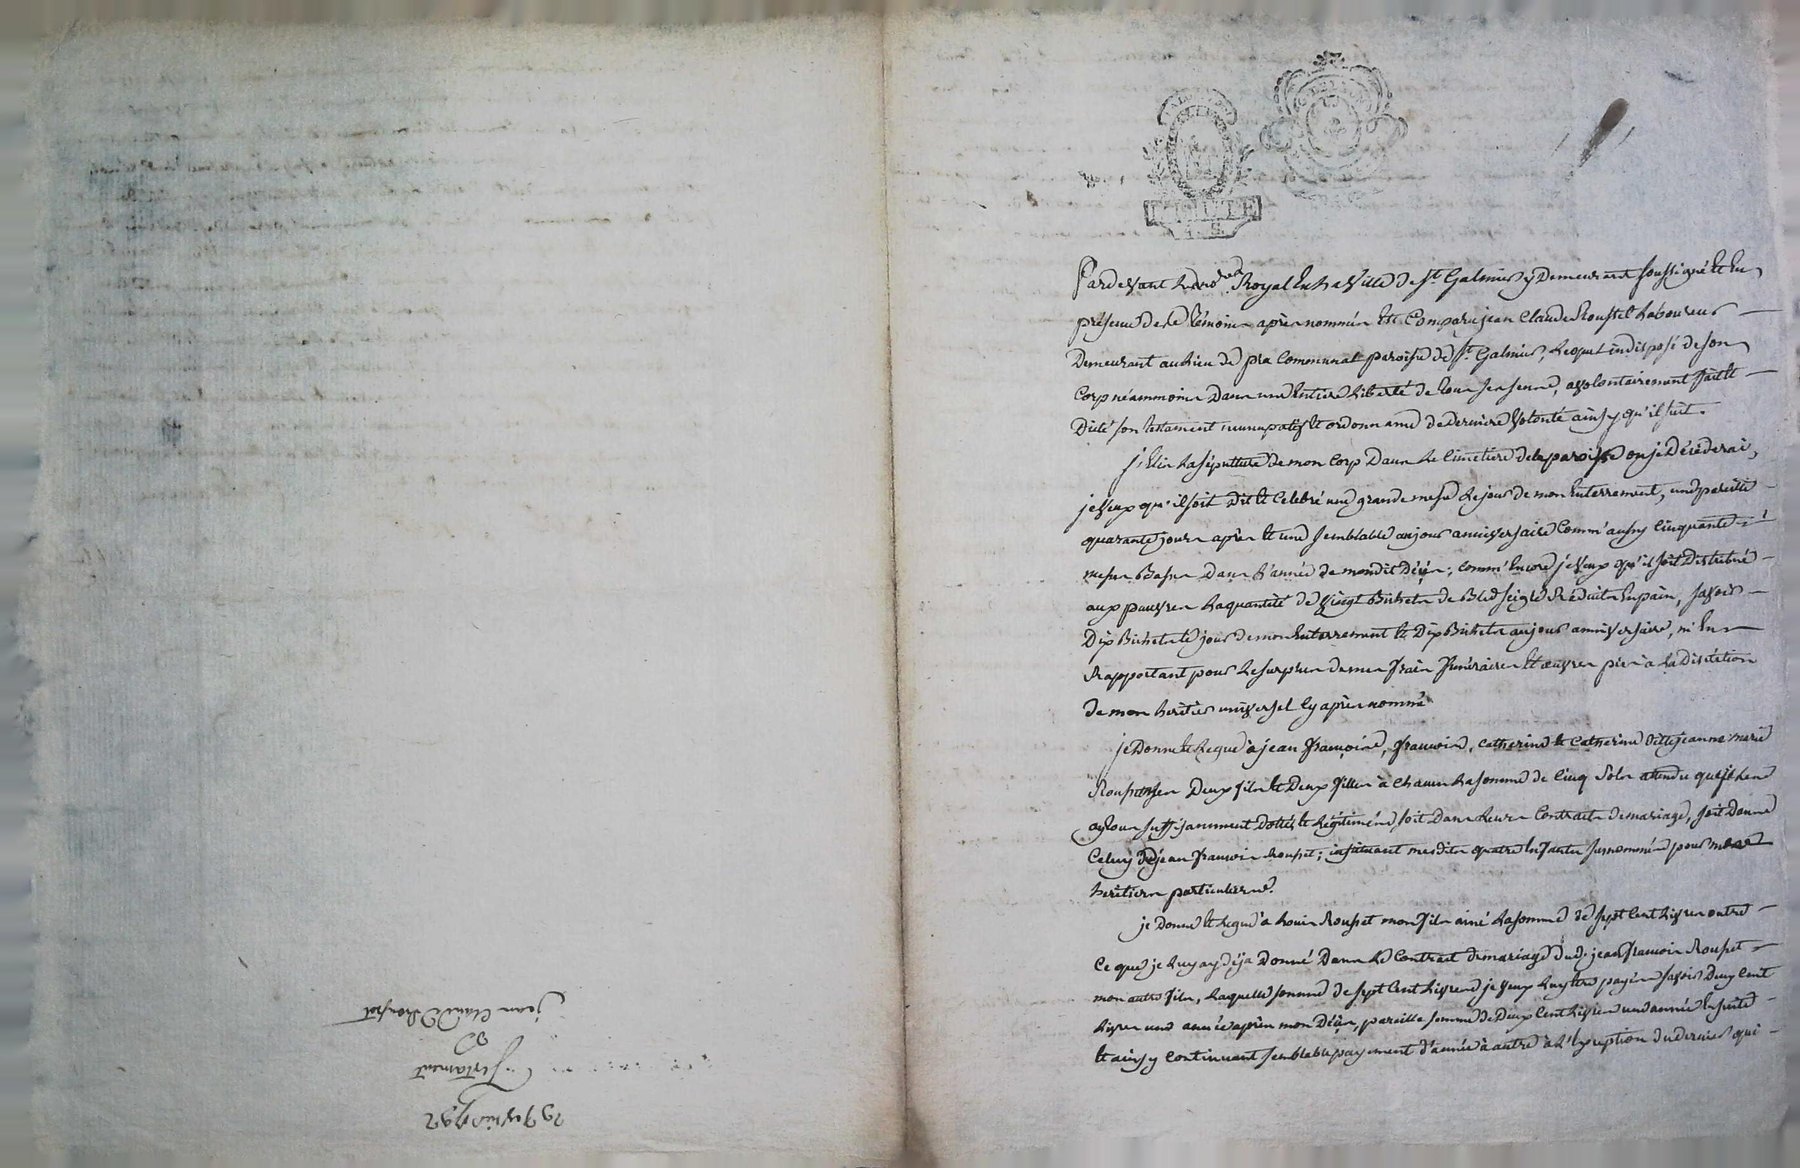 29 Janvier 1792
Testament
de
jean Claude Rouset
Pardevant le no.re Royal en la Ville de S.t Galmier y Demeurant soussigné et en
présence de de témoins après nommés est Comparu jean Claude Rousset laboureur
Demeurant au lieu de pra Communal paroisse de S.t Galmier, lequel indisposé de son
Corp néammoins Dans une entiere liberté de tous ses sens, a volontairement fait et
Dicté son testament nuncupatif et ordonnance de derniere volonté ainsy qu'il suit.
j'Elis la sépulture de mon Corp Dans le Cimetiere de la paroisse ou je Décéderai,
je veux qu'il soit Dit et Celebré une grande messe le jour de mon Enterrement, une pareille
quarante jours après et une semblable au jour anniversaire Comm'aussy Cinquante
messes Basses Dans l'année de mondit Décès; Comm'encore je veux qu'il soit Distribué
aux pauvres la quantité de vingt Bichets de Bled seigle Réduits en pain, savoir
Dix Bichets le jour de mon Enterrement et Dix Bichets au jour anniversaire, m'En
Rapportant pour le surplus de mes frais funéraires et œuvres pies à la Discrétion
de mon héritier universel Cy après nommé
je Donne et legue à jean françois, françois, Catherine et Catherine Ditte jeanne marie
Rousset mes Deux fils et Deux filles à Chacun la somme de Cinq sols attendu que je les
ay tous suffisamment Dotés et légitimés, soit Dans leurs Contracts de mariage, soit Dans
Celuy de jean françois Rouset; instituant mesdits quatre Enfants surnommés pour mes
héritiers particuliers.
je Donne et legue à Louis Rouset mon fils ainé la somme de sept Cent livres outre
Ce que je luy ay déja Donné Dans le Contract de mariage dud. jean françois Rouset
mon autre fils, laquelle somme de sept Cent livres je veux luy être payée savoir Deux Cent
livres une année après mon Décès, pareille somme de Deux Cent livres une année Ensuite
et ainsy Continuant semblable payement d'année à autre à l'Exeption du dernier qui